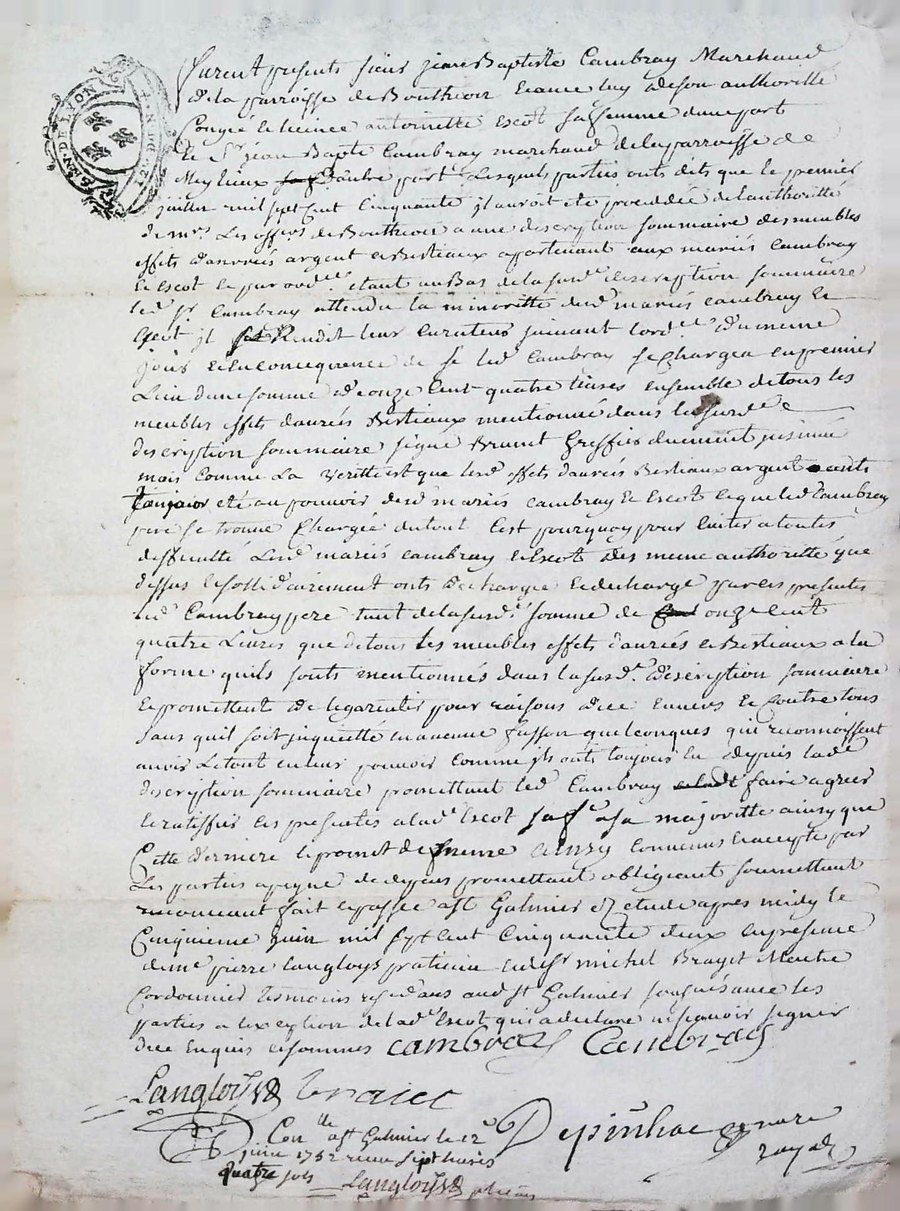 GEN. DE LYON
furent presents sieur jean Baptiste Cambray Marchand
de la parroisse de Bouthéon licance luy de son authoritté
Congée et licence antoinette Escot sa femme dune part
et Sr. jean Bapte Cambray marchand de la parroisse de
Meylieux dautre part. Lesquels parties onts dits que le premier
juillet mil sept cent Cinquante il auroit eté procedée de lauthoritté
de mrs. Les offrs. de Bouthéon a une description sommaire des meubles
effets danréés argent et Bestiaux appartenant aux mariés Cambray
et Escot et par ord.ce étant au Bas de la susd.e description sommaire
led. Sr. Cambray attendu la minoritté desd. mariés cambray et
Escot il se Rendit leur curateur suivant lord.ce du meme
jour et en concequence de se led. Cambray se chargea en premier
Lieu dune somme de onze cent quatre livres ensemble de tous les
meubles effets danréés Bestiaux mentionné dans la susd.e
description sommaire signé Brunet Greffier duement
mais comme La veritté est que lesd. effets danréés Bestiaux argent onts
toujour eté au pouvoir desd. mariés cambray et Escot et que led. Cambray
pere se trouve chargée du tout Cest pourquoy pour Eviter a toutes
difficulté Lesd. mariés cambray et Escot des meme authoritté que
dessus et sollidairement onts dechargée et decharge par ces presentes
led. Cambray pere tant de la susd.e somme de onze cent
quatre Livres que de tous les meubles effets danréés et Bestiaux a la
forme quils sonts mentionnés dans la susd.e description sommaire
et promettent de le garentir pour raisons dice envers et contre tous
sans quil soit inquietté en aucune fasson quelconques qui reconnoissent
avoir Le tout en leur pouvoir comme ils onts toujour eu depuis lad.e
description sommaire promettant led. Cambray faire agreer
et ratiffier ces presentes a lad.e Escot sa fe. a sa majoritté ainsy que
Cette derniere le promet de meme ainsy convenus et accepté par
Les parties a peyne de depens promettant obligeant soumettant
renonceant fait et passée a St. Galmier et etude apres midy le
Cinquieme juin mil sept cent Cinquante deux en presence
de me. pierre Langloys praticien et de Sr. michel Brayet Maitre
Cordonnier temoins residans aud. St. Galmier soussignés avec les
parties a lexception de lad.e Escot qui a declaré ne sçavoir signer
dice Enquis et sommés CAMBRAY Cambray
Langloys Braiet
Conlle a St. Galmier le 12e
juin 1752 receu sept livres
quatre sols Langloys
Depinhac nore
royal